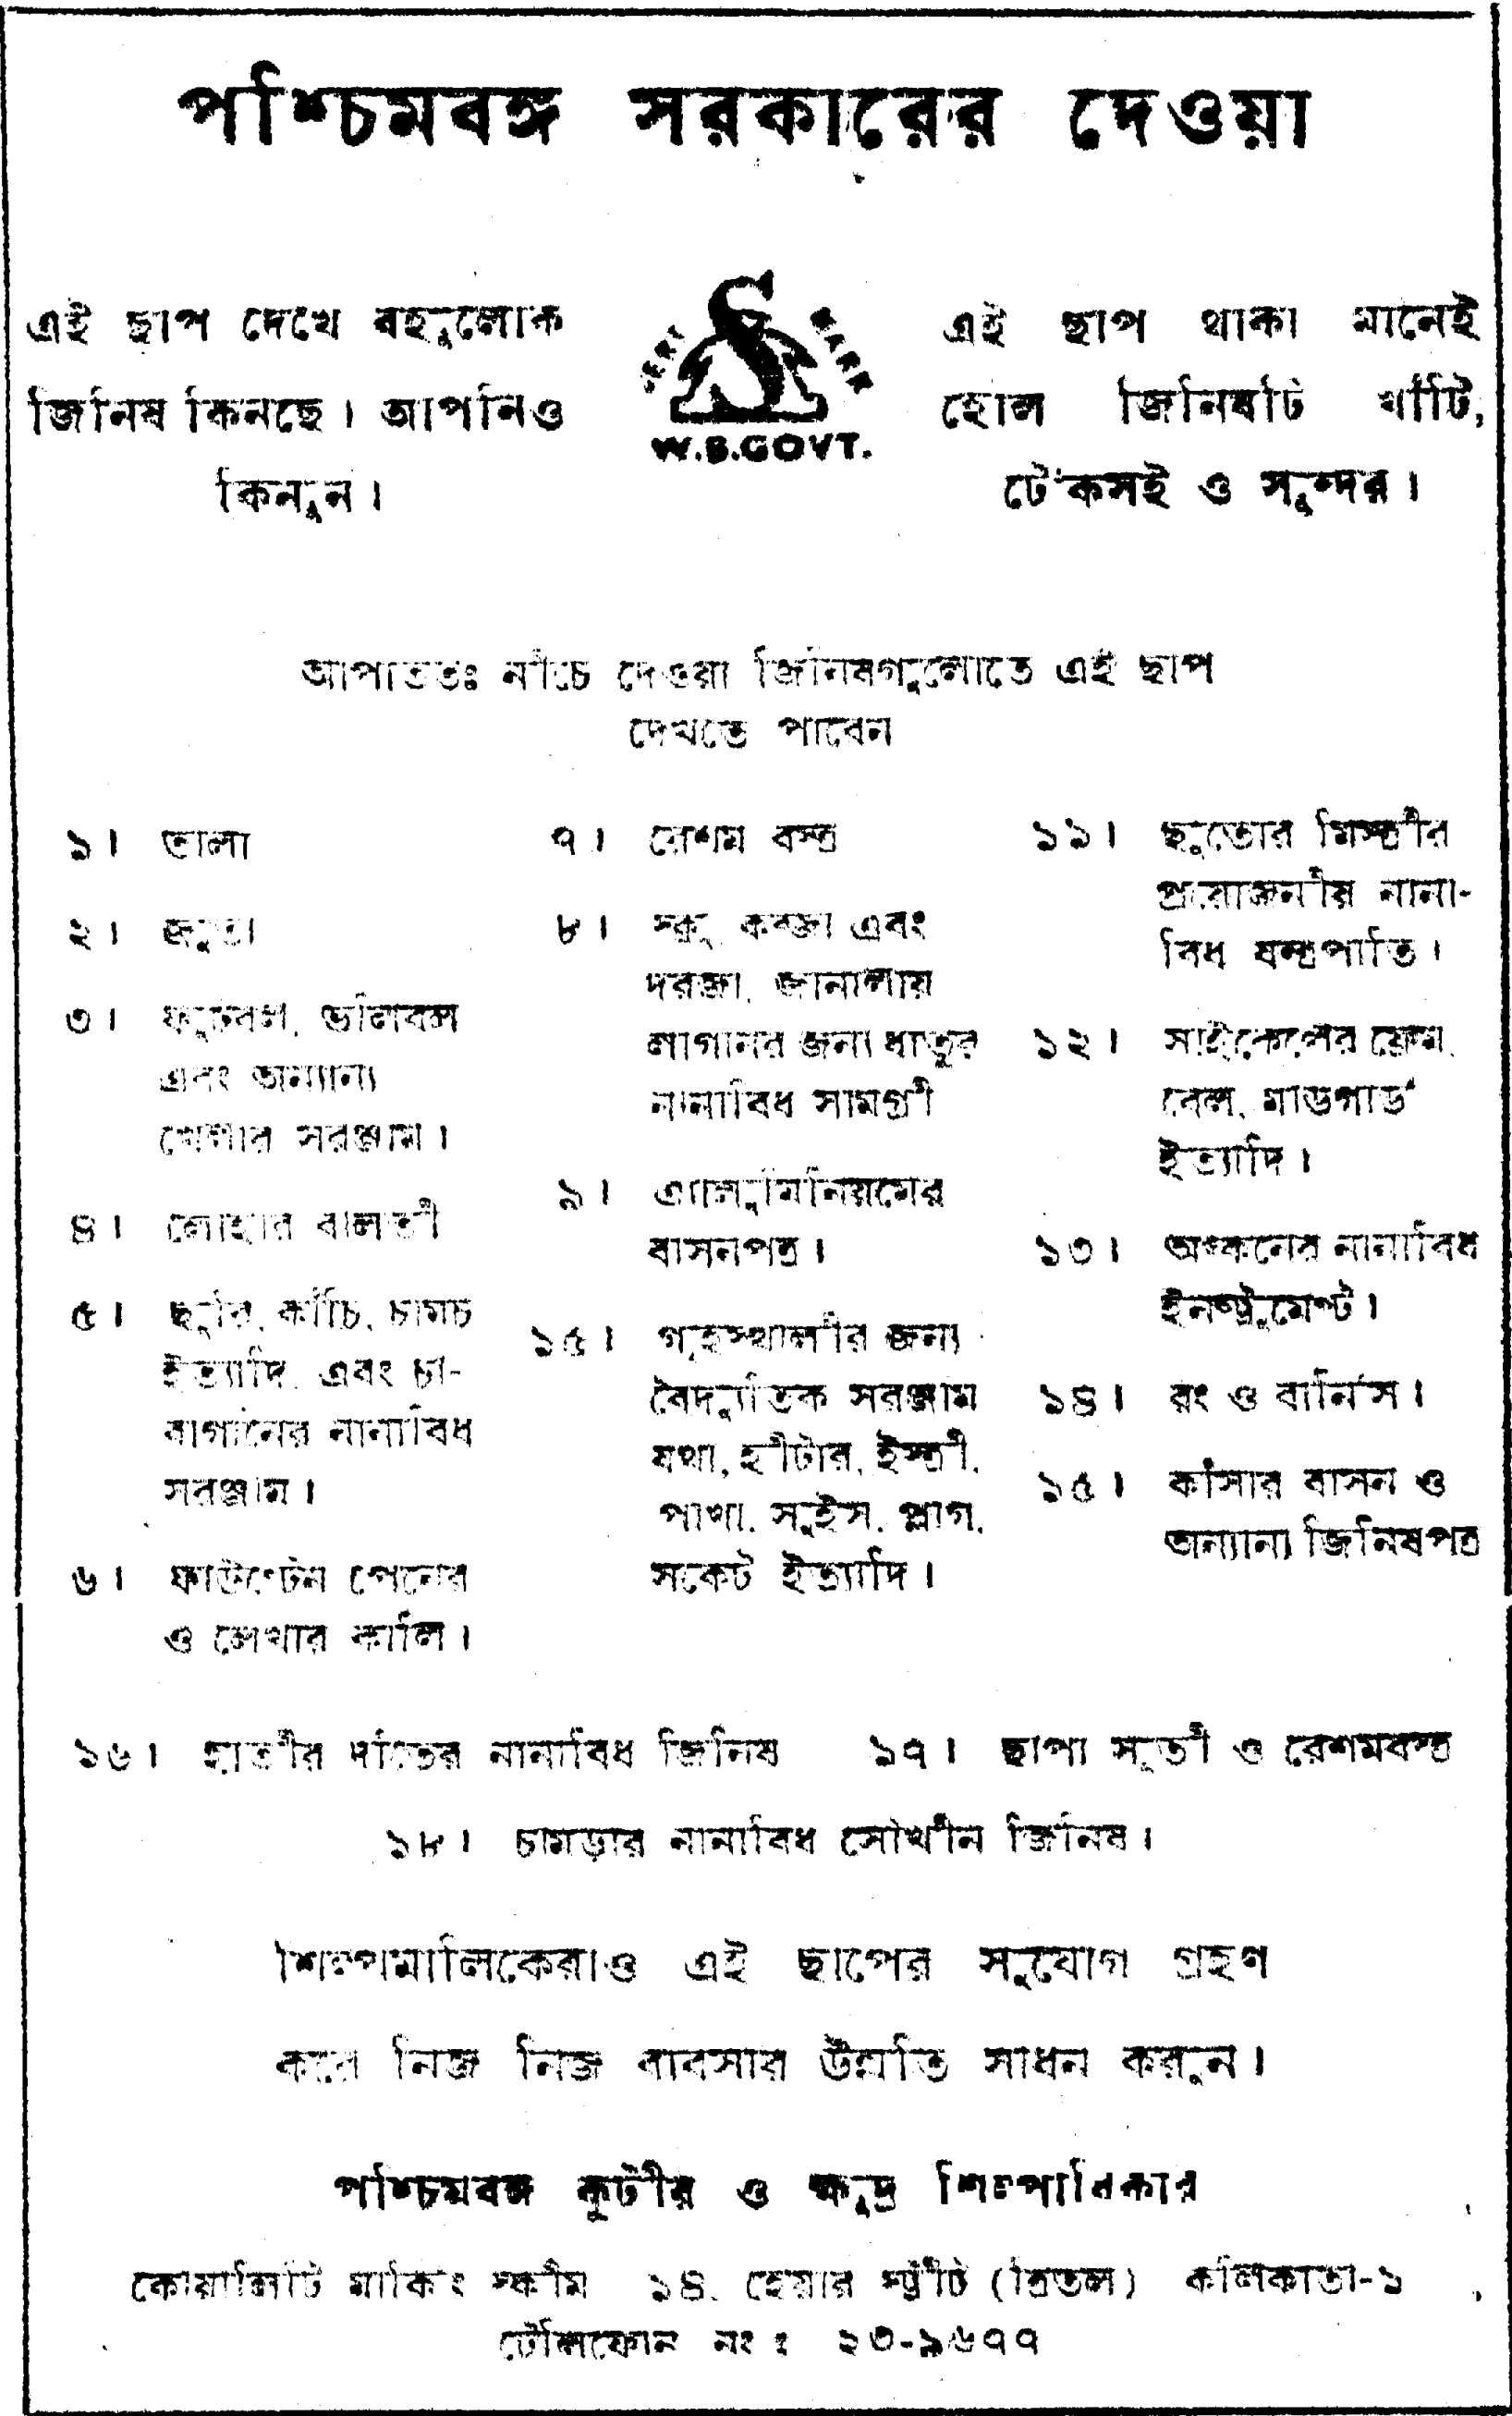 পশ্চিমবঙ্গ সরকারের দেওয়া
এই ছাপ দেখে বহুলোক
জিনিষ কিনছে। আপনিও
কিনুন।
MARK
W.B.GOVT.
এই ছাপ থাকা মানেই
হোল জিনিষটি খাঁটি,
টেঁকসই ও সুন্দর।
আপাততঃ নীচে দেওয়া জিনিষগুলোতে এই ছাপ
দেখতে পাবেন
১। তালা
২। জুতা
৩। ফুটবল, ভলিবল
এবং অন্যান্য
খেলার সরঞ্জাম।
৪। লোহার বালতী
৫। ছুরি, কাঁচি, চামচ
ইত্যাদি, এবং চা-
বাগানের নানাবিধ
সরঞ্জাম।
৬। ফাউণ্টেন পেনের
ও লেখার কালি।
৭। রেশম বস্ত্র
৮। স্ক্রু, কব্জা এবং
দরজা, জানালায়
লাগানর জন্য ধাতুর
নানাবিধ সামগ্রী
৯। এ্যালুমিনিয়মের
বাসনপত্র।
১৫। গৃহস্থালীর জন্য
বৈদ্যুতিক সরঞ্জাম
যথা, হীটার, ইস্ত্রী,
পাখা, সুইস, প্লাগ,
সকেট ইত্যাদি।
১১। ছুতোর মিস্ত্রীর
প্রয়োজনীয় নানা-
বিধ যন্ত্রপাতি।
১২। সাইকেলের ফ্রেম,
বেল, মাডগার্ড
ইত্যাদি।
১৩। অঙ্কনের নানাবিধ
ইনস্ট্রুমেণ্ট।
১৪। রং ও বার্নিস।
১৫। কাঁসার বাসন ও
অন্যান্য জিনিষপত্র
১৬। হাতীর দাঁতের নানাবিধ জিনিষ ১৭। ছাপা সুতী ও রেশমবস্ত্র
১৮। চামড়ার নানাবিধ সৌখীন জিনিষ।
শিল্পমালিকেরাও এই ছাপের সুযোগ গ্রহণ
করে নিজ নিজ ব্যবসার উন্নতি সাধন করুন।
পশ্চিমবঙ্গ কুটীর ও ক্ষুদ্র শিল্পাধিকার
কোয়ালিটি মার্কিং স্কীম ১৪, হেয়ার স্ট্রীট (ত্রিতল) কলিকাতা-১
টেলিফোন নং : ২৩-৯৬৭৭